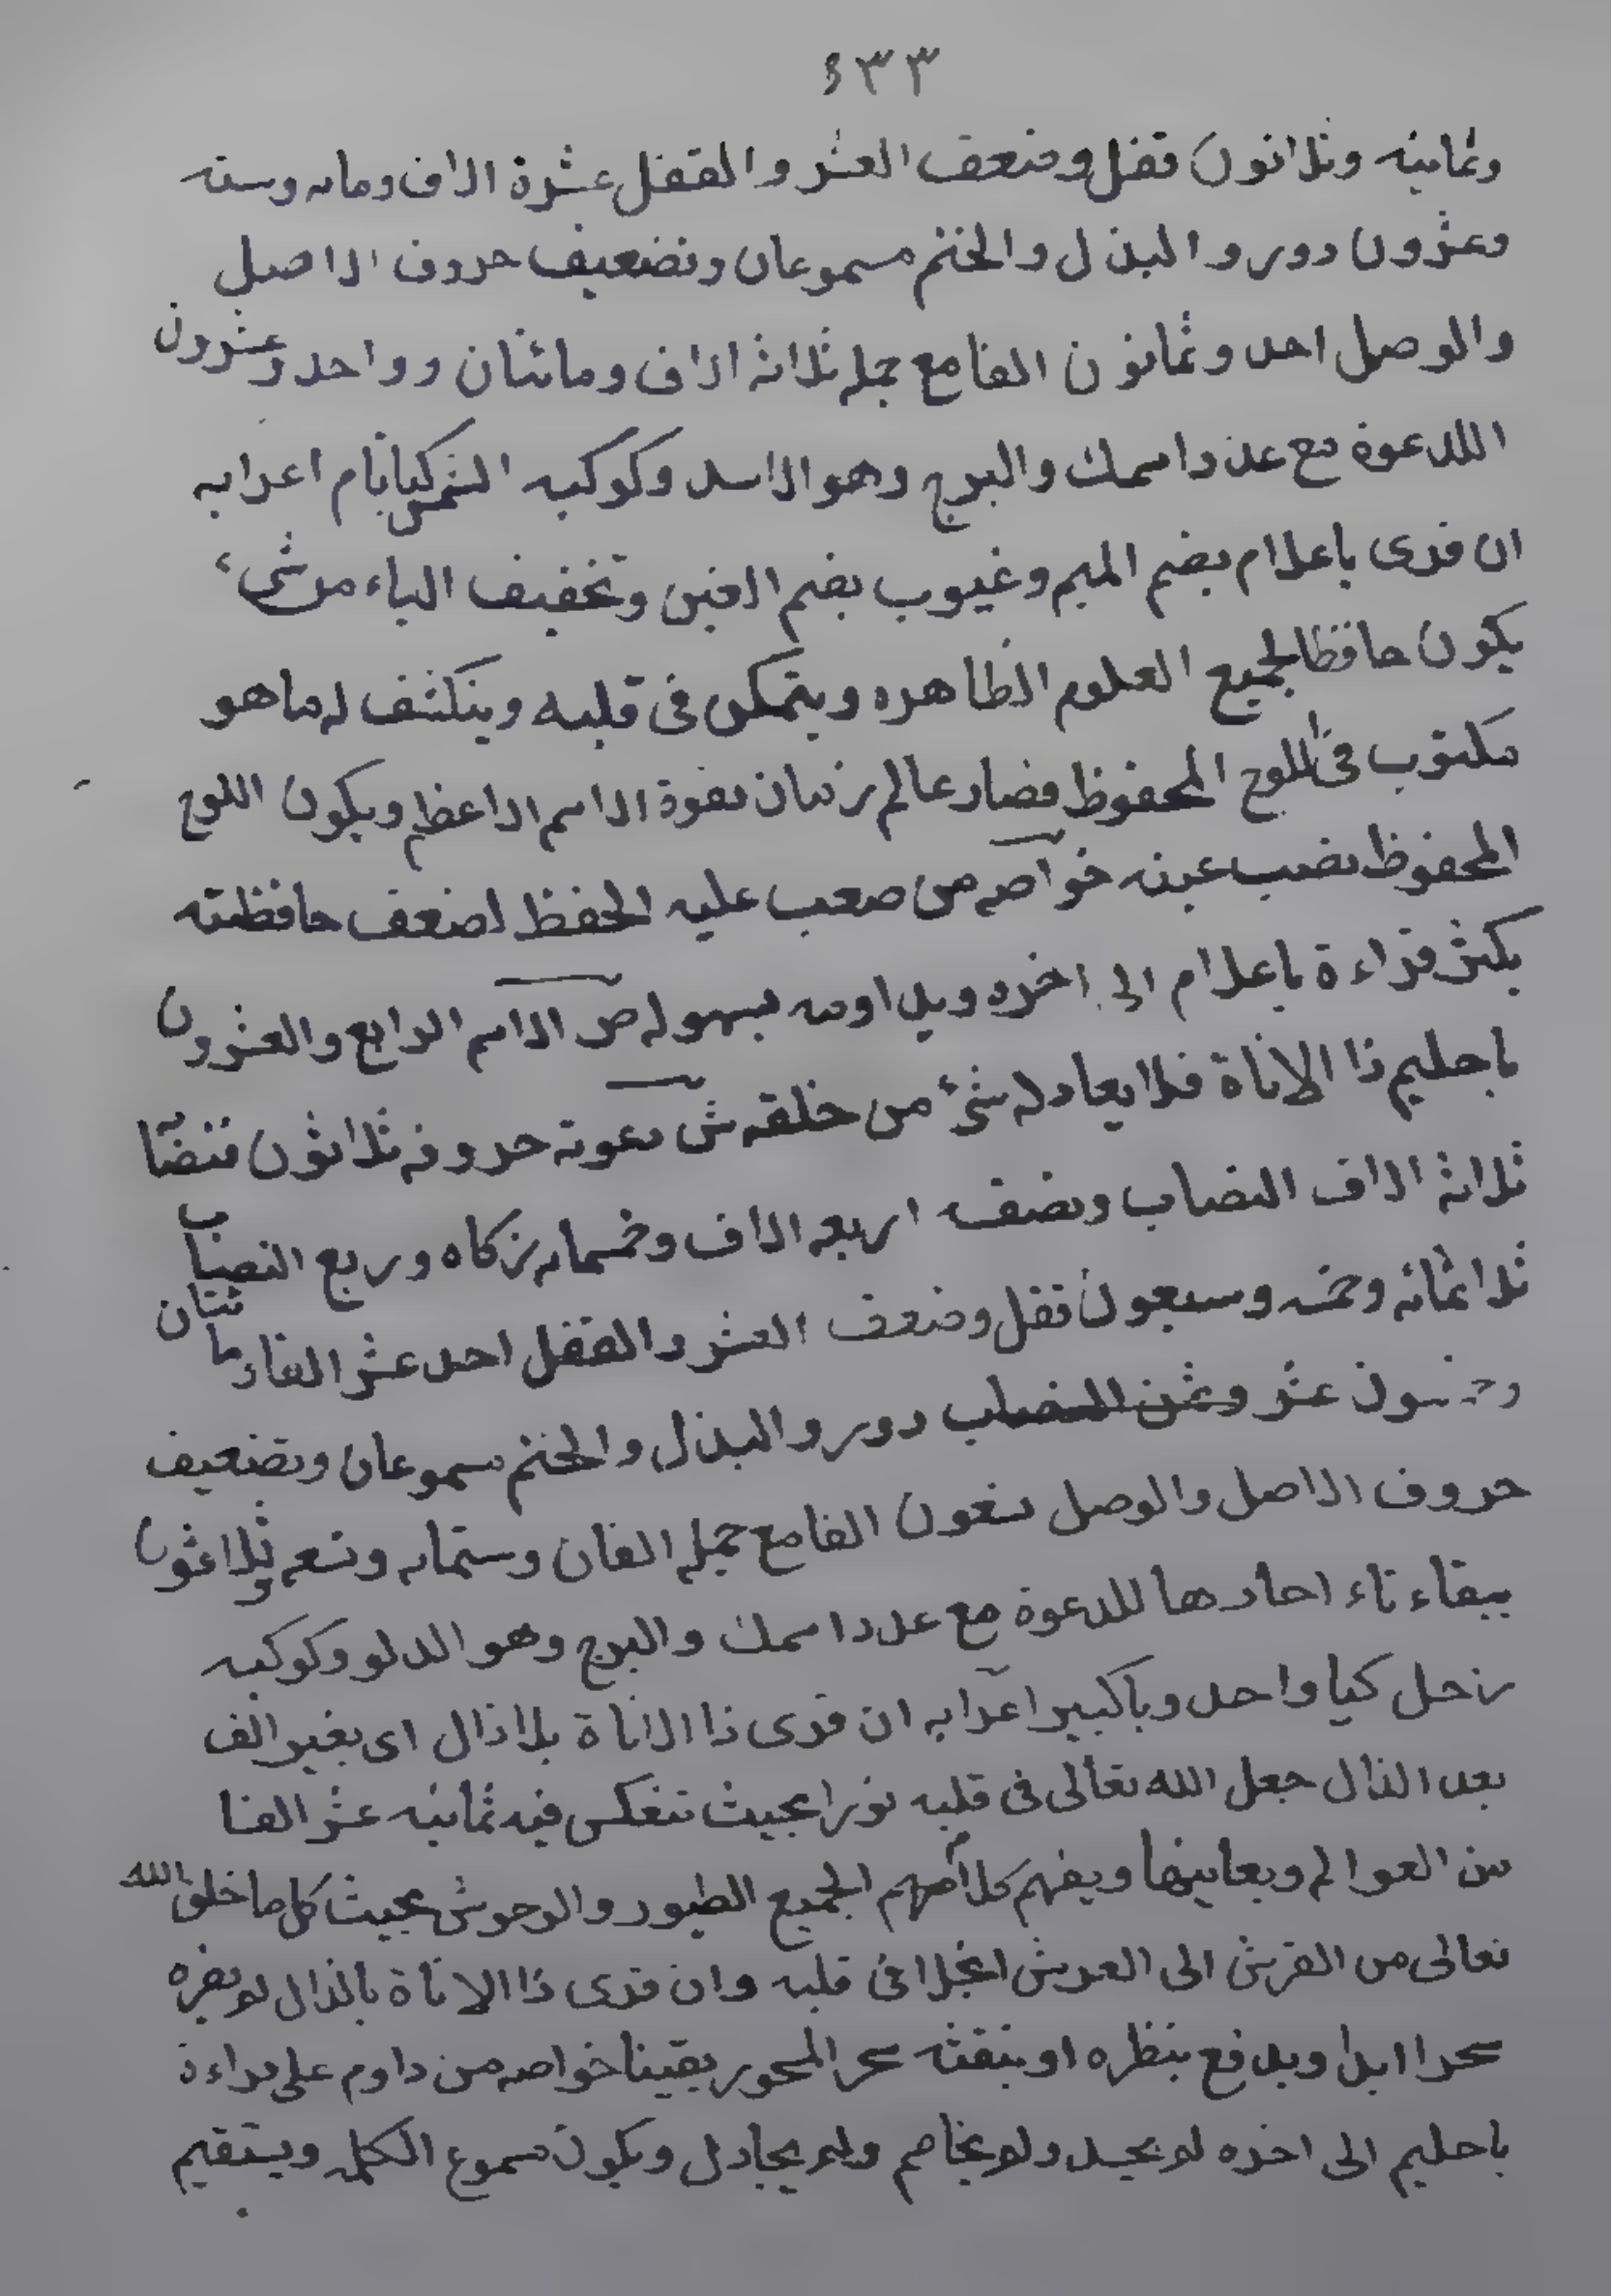 ٤٣٣
وثمانيه وثلاثون قفل وضعف العشر والقفل عشرة الاف ومايه وسته
وعشرون دور والبذل والختم مسموعان وتضعيف حروف الاصل
والوصل احد وثمانون الفا مع جمله ثلاثة الاف ومائتان وواحد وعشرون
اللدعوة مع عدد اسمك والبرج وهو الاسد وكوكبه الشمس كيا تام اعرابه
ان قرى ياعلام بضم الميم وغيوب بضم الغين وتخفيف الياء من شىء
يكون حافظا لجميع العلوم الظاهره ويتمكن فى قلبه وينكشف له ما هو
مكتوب فى اللوح المحفوظ فصار عالم زمان بقوة الاسم الاعظم ويكون اللوح
المحفوظ نصب عينه خواصه من صعب عليه الحفظ لضعف حافظته
يكثر قراءة ياعلام الى اخره ويداومه بسهوله ص الاسم الرابع والعشرون
ياحليم ذا الاناة فلا يعادله شئ من خلقه ش دعوته حروفه ثلاثون نصابا
ثلاثة الاف النصاب ونصفه اربعه الاف وخمسمايه زكاه وربع النصاب
ثلاثمائه وخمسه وسبعون قفل وضعف العشر والقفل احد عشر الفا ومائتان
وخمسون عشر وثمن النصاب دور والبذل والختم مسموعان وتضعيف
حروف الاصل والوصل تسعون الفا مع جمله الفان وستمايه وتسعه وثلاثون
ببقاء تاء احادها للدعوة مع عدد اسمك والبرج وهو الدلو وكوكبه
زحل كيا واحد وياكبير اعرابه ان قرى ذا الاناة بلا ذال اى بغير الف
بعد الذال جعل الله تعالى فى قلبه نورا بحيث تنعكس فيه ثمانيه عشر الفا
من العوالم ويعاينها ويفهم كلامهم لجميع الطيور والوحوش بحيث كل ما خلق الله
تعالى من الفرش الى العرش انجلا فى قلبه وان قرى ذا الاناة بالذال لو يضره
سحرا ابدا ويدفع بنظره او بنفثه سحر المسحور يقينا خواصه من داوم على قراءة
ياحليم الى اخره لو يحسد ولو يخاصم ولم يجادل ويكون مسموع الكلمه ويستقيم